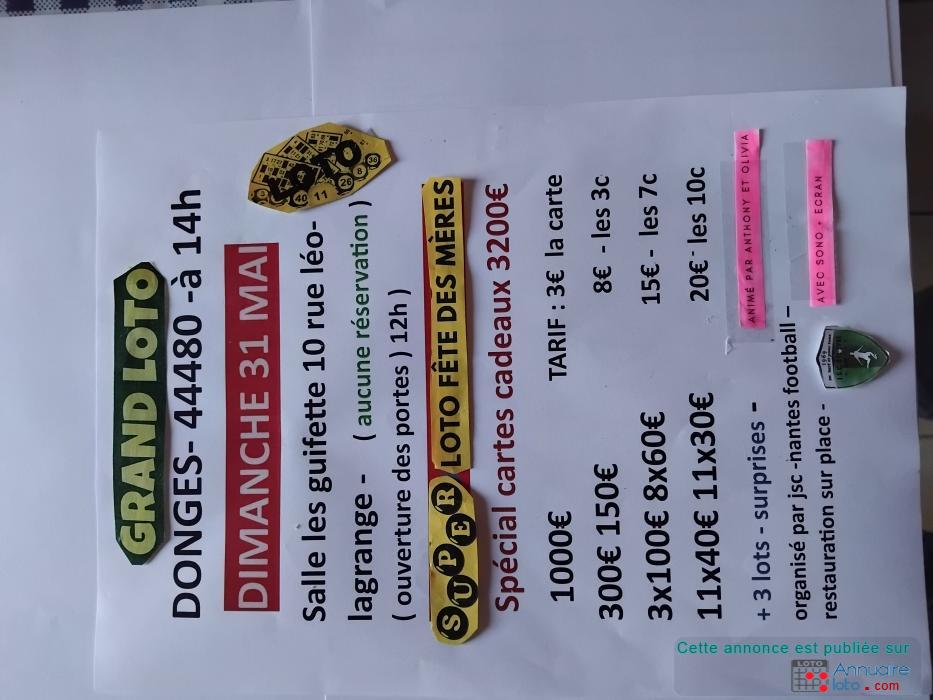 GRAND LOTO
DONGES- 44480 -à 14h
DIMANCHE 31 MAI
LOTO
40 11 26 8 36
Salle les guifette 10 rue léo-
lagrange - ( aucune réservation )
( ouverture des portes ) 12h )
SUPER LOTO FÊTE DES MÈRES
Spécial cartes cadeaux 3200€
1000€ TARIF : 3€ la carte
300€ 150€ 8€ - les 3c
3x100€ 8x60€ 15€ - les 7c
11x40€ 11x30€ 20€ - les 10c
+ 3 lots - surprises -
ANIMÉ PAR ANTHONY ET OLIVIA
organisé par jsc -nantes football –
AVEC SONO + ECRAN
restauration sur place -
Cette annonce est publiée sur
LOTO Annuaire
loto.com